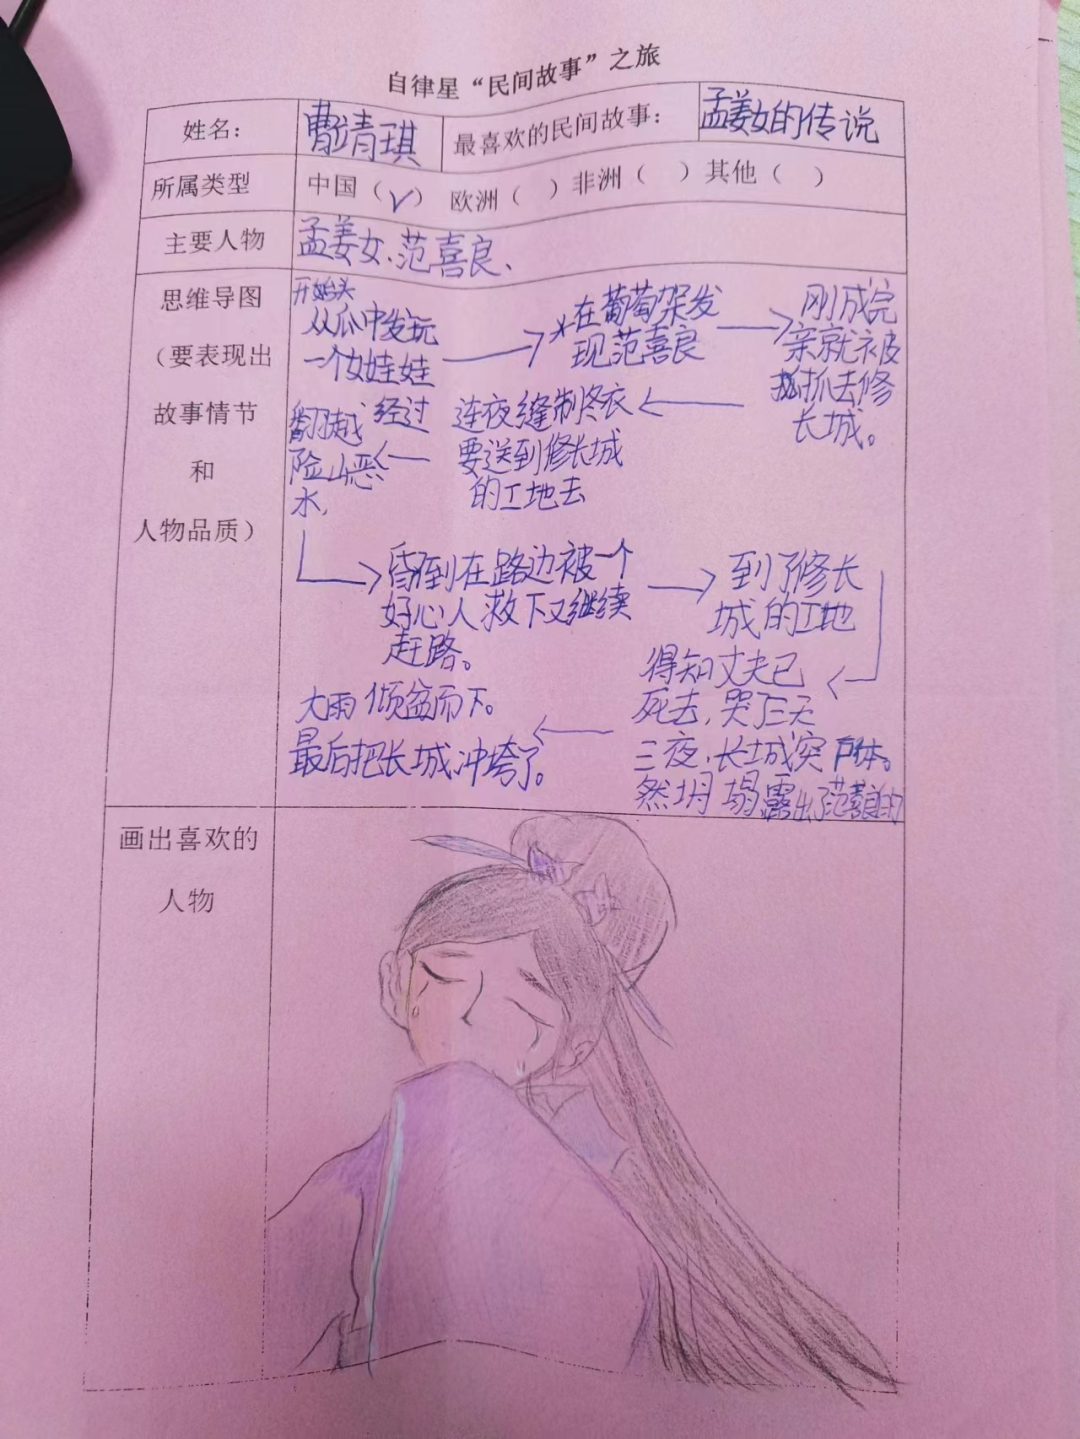 自律星“民间故事”之旅
姓名： 曹靖琪 最喜欢的民间故事： 孟姜女的传说
所属类型 中国（√） 欧洲（ ）非洲（ ）其他（ ）
主要人物 孟姜女、范喜良、
思维导图
（要表现出
故事情节
和
人物品质）
开始头
从瓜中发玩
一个女娃娃
在葡萄架发
现范喜良
刚成完
亲就被
抓去修
长城。
连夜缝制冬衣
要送到修长城
的工地去
经过
翻越
险山恶
水，
昏倒在路边被一个
好心人救下又继续
赶路。
到了修长
城的工地
得知丈夫已
死去，哭了三天
三夜，长城突
然坍塌露出了范喜良的
尸体。
大雨倾盆而下。
最后把长城冲垮了。
画出喜欢的
人物